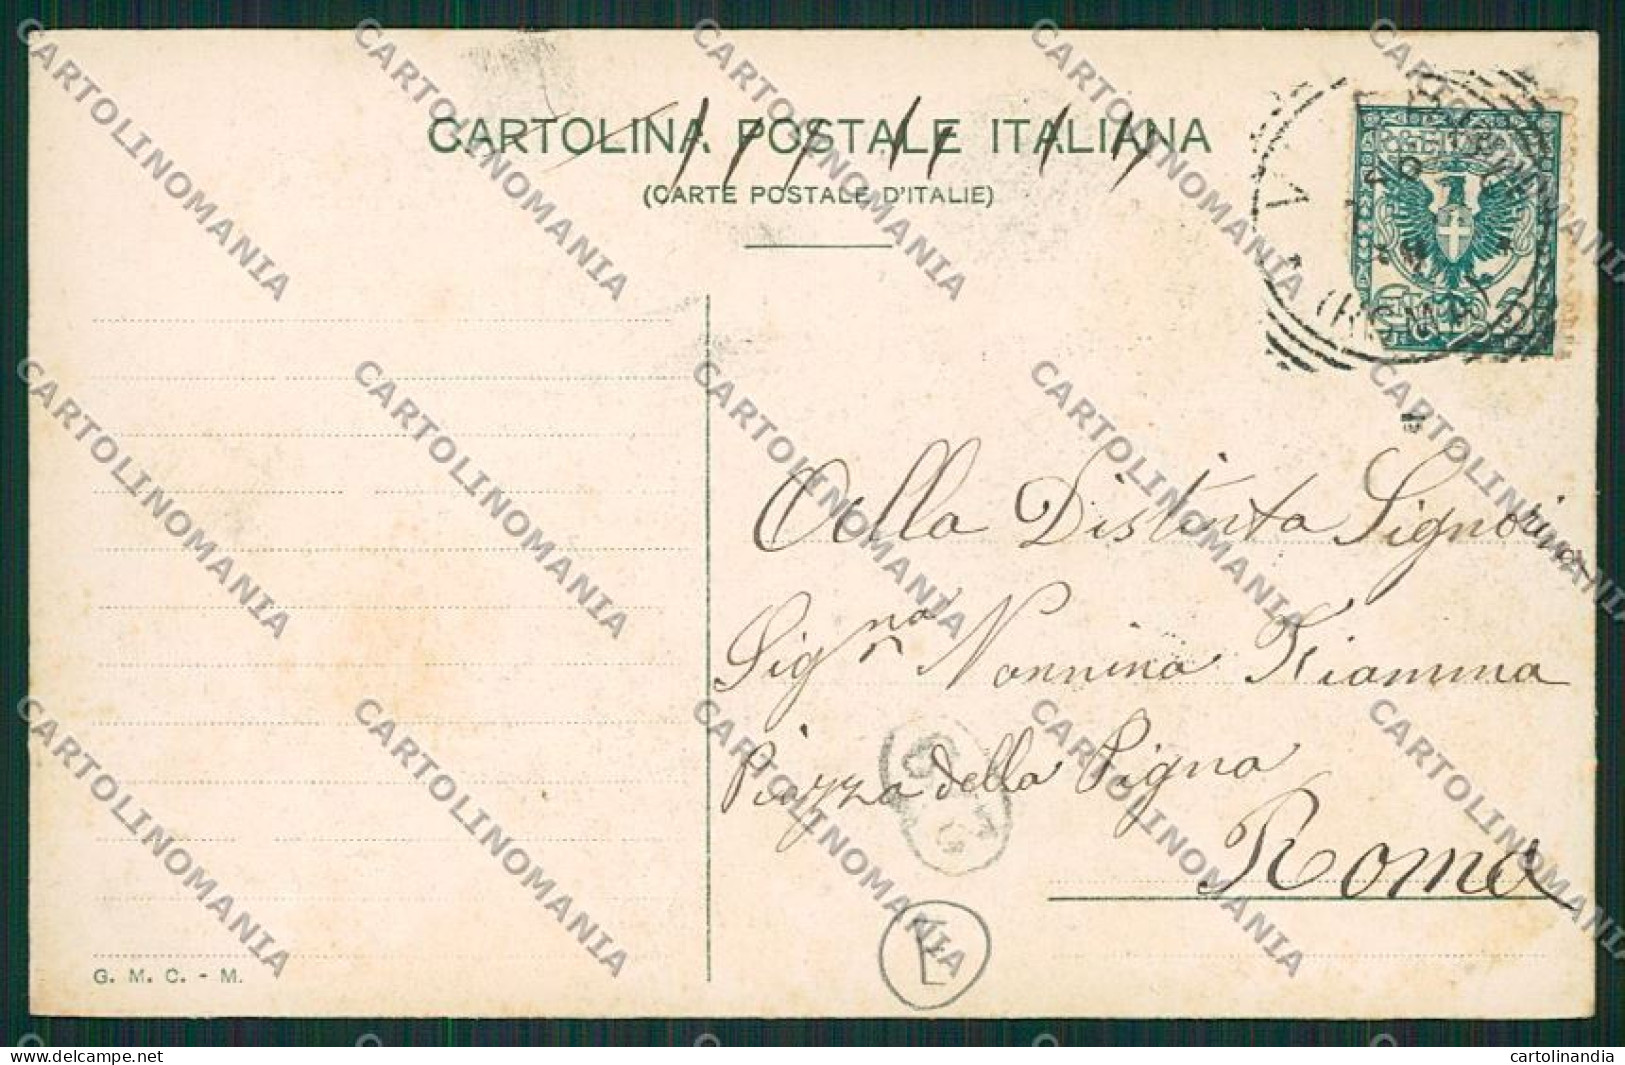 CARTOLINA POSTALE ITALIANA
(CARTE POSTALE D'ITALIE)
(ROMA)
Alla Distinta Signorina
Sig.na Nannina Fiamma
Piazza della Pigna
Roma
L
G. M. C. - M.
CARTOLINOMANIA
delcampe.net
cartolinandia